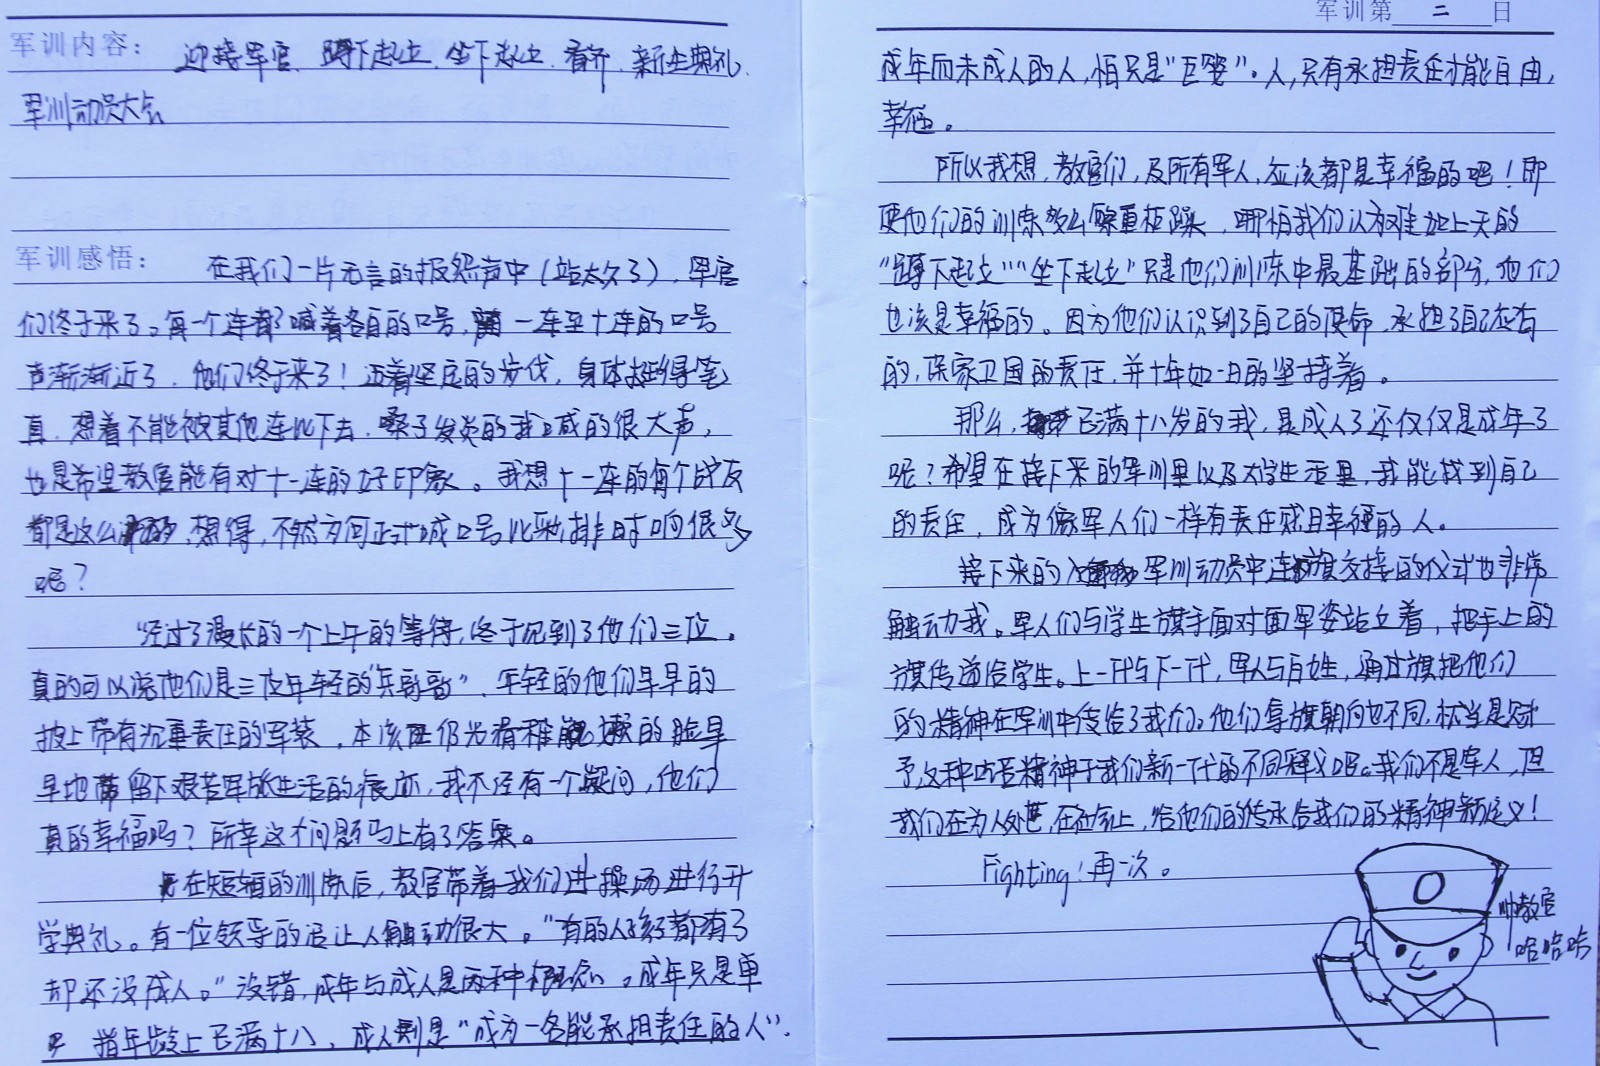 军训内容： 迎接军官、蹲下起立、坐下起立、看齐、新生典礼、
军训动员大会
军训感悟： 在我们一片无言的报怨声中（站太久了），军官
们终于来了。每一个连都喊着各自的口号，一连至十连的口号
声渐渐近了，他们终于来了！迈着坚定的步伐，身体挺得笔
直，想着不能被其他连比下去，嗓子发炎的我喊的很大声，
也是希望教官能有对十一连的好印象。我想十一连的每个战友
都是这么想得，不然为何正式喊口号比彩排时响很多
呢？
经过了漫长的一个上午的等待，终于见到了他们三位。
真的可以说他们是三位年轻的“兵哥哥”，年轻的他们早早的
披上带有沉重责任的军装，本该仍光着稚嫩的脸早
早地留下艰苦军旅生活的痕迹，我不经有一个疑问，他们
真的幸福吗？所幸这个问题马上有了答案。
在短暂的训练后，教官带着我们进操场进行开
学典礼。有一位领导的话让人触动很大。“有的人孩子都有了
却还没成人。”没错，成年与成人是两种概念。成年只是单
指年龄上已满十八，成人则是“成为一名能承担责任的人”.
军训第 二 日
成年而未成人的人，怕只是“巨婴”。人，只有承担责任才能自由，
幸福。
所以我想，教官们，及所有军人，应该都是幸福的吧！即
使他们的训练多么繁重枯躁，哪怕我们认为难如上天的
“蹲下起立”“坐下起立”只是他们训练中最基础的部分，他们
也该是幸福的。因为他们认识到了自己的使命，承担了自己应有
的，保家卫国的责任，并十年如一日的坚持着。
那么，已满十八岁的我，是成人了还仅仅是成年了
呢？希望在接下来的军训里以及大学生活里，我能找到自己
的责任，成为像军人们一样有责任感且幸福的人。
接下来的军训动员中连旗交接的仪式也非常
触动我。军人们与学生旗手面对面军姿站立着，把手上的
旗传递给学生。上一代与下一代，军人与百姓，通过旗把他们
的精神在军训中传给了我们。他们拿旗朝向也不同，应当是赋
予这种吃苦精神于我们新一代的不同释义吧。我们不是军人，但
我们在为人处世，在社会上，给他们的传承给我们的精神新定义！
Fighting！再一次。
帅教官
哈哈哈